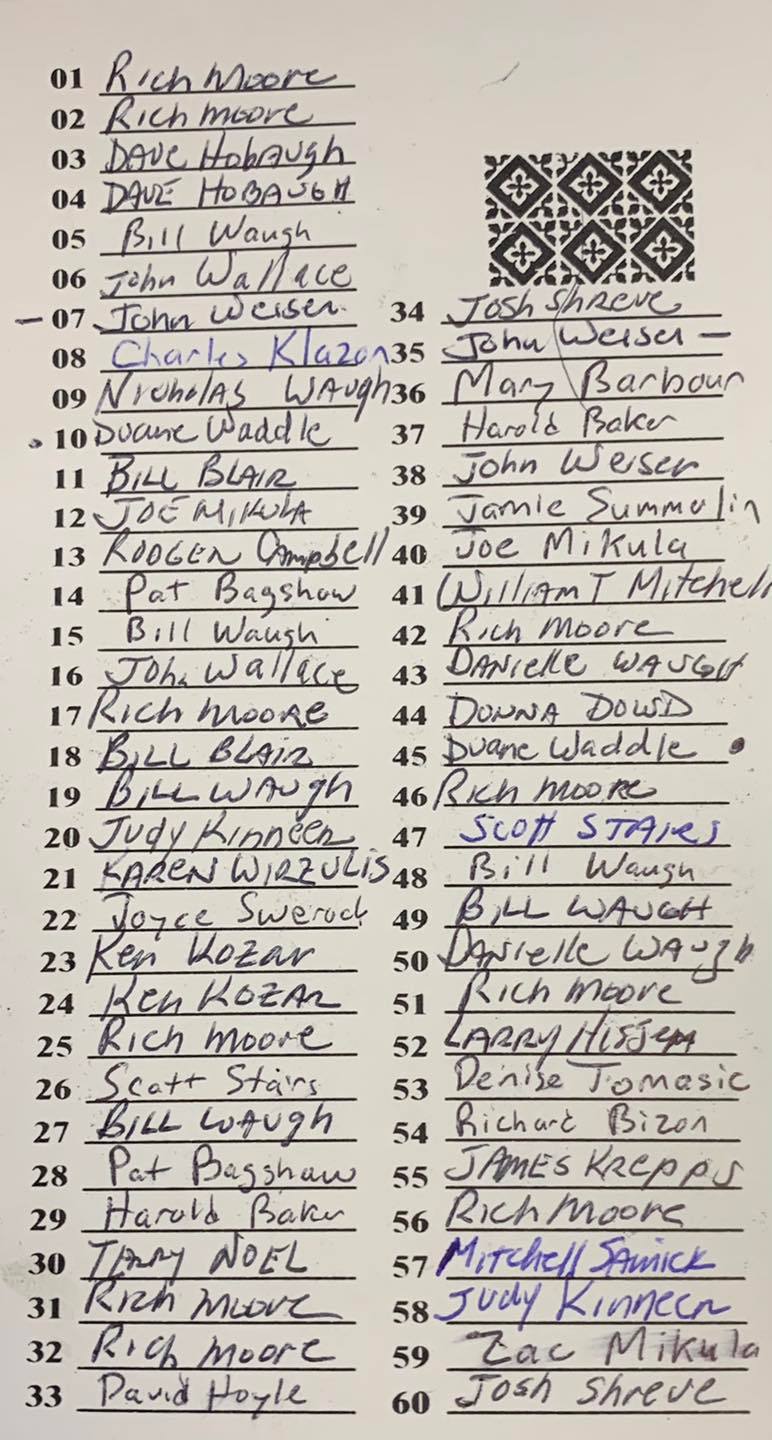 01 Rich Moore
02 Rich Moore
03 DAVE HobAugh
04 DAVE HOBAUGH
05 Bill Waugh
06 John Wallace
- 07 John Weiser
08 Charles Klazon
09 Nicholas WAugh
. 10 Duane Waddle
11 BILL BLAIR
12 JOE MIKULA
13 RODGER Campbell
14 Pat Bagshaw
15 Bill Waugh
16 John Wallace
17 Rich Moore
18 BILL BLAIR
19 BILL WAugh
20 Judy Kinneer
21 KAREN WIRZULIS
22 Joyce
23 Ken Kozar
24 Ken KOZAR
25 Rich Moore
26 Scott Stairs
27 BILL WAugh
28 Pat Bagshaw
29 Harold Baker
30 TERRY NOEL
31 Rich Moore
32 Rich Moore
33 David Hoyle
34 Josh Shreve
35 John Weiser -
36 Mary Barbour
37 Harold Baker
38 John Weiser
39 Jamie Summulin
40 Joe Mikula
41 William T Mitchell
42 Rich Moore
43 DANielle WAUGH
44 DONNA DOWD
45 Duane Waddle •
46 Rich Moore
47 SCOTT STAIRS
48 Bill Waugh
49 BILL WAUGH
50 DANielle WAugh
51 Rich Moore
52 LARRY HISSEM
53 Denise Tomasic
54 Richard Bizon
55 JAMES KREPPS
56 Rich Moore
57 Mitchell SAMICK
58 Judy Kinneer
59 Zac Mikula
60 Josh Shreve